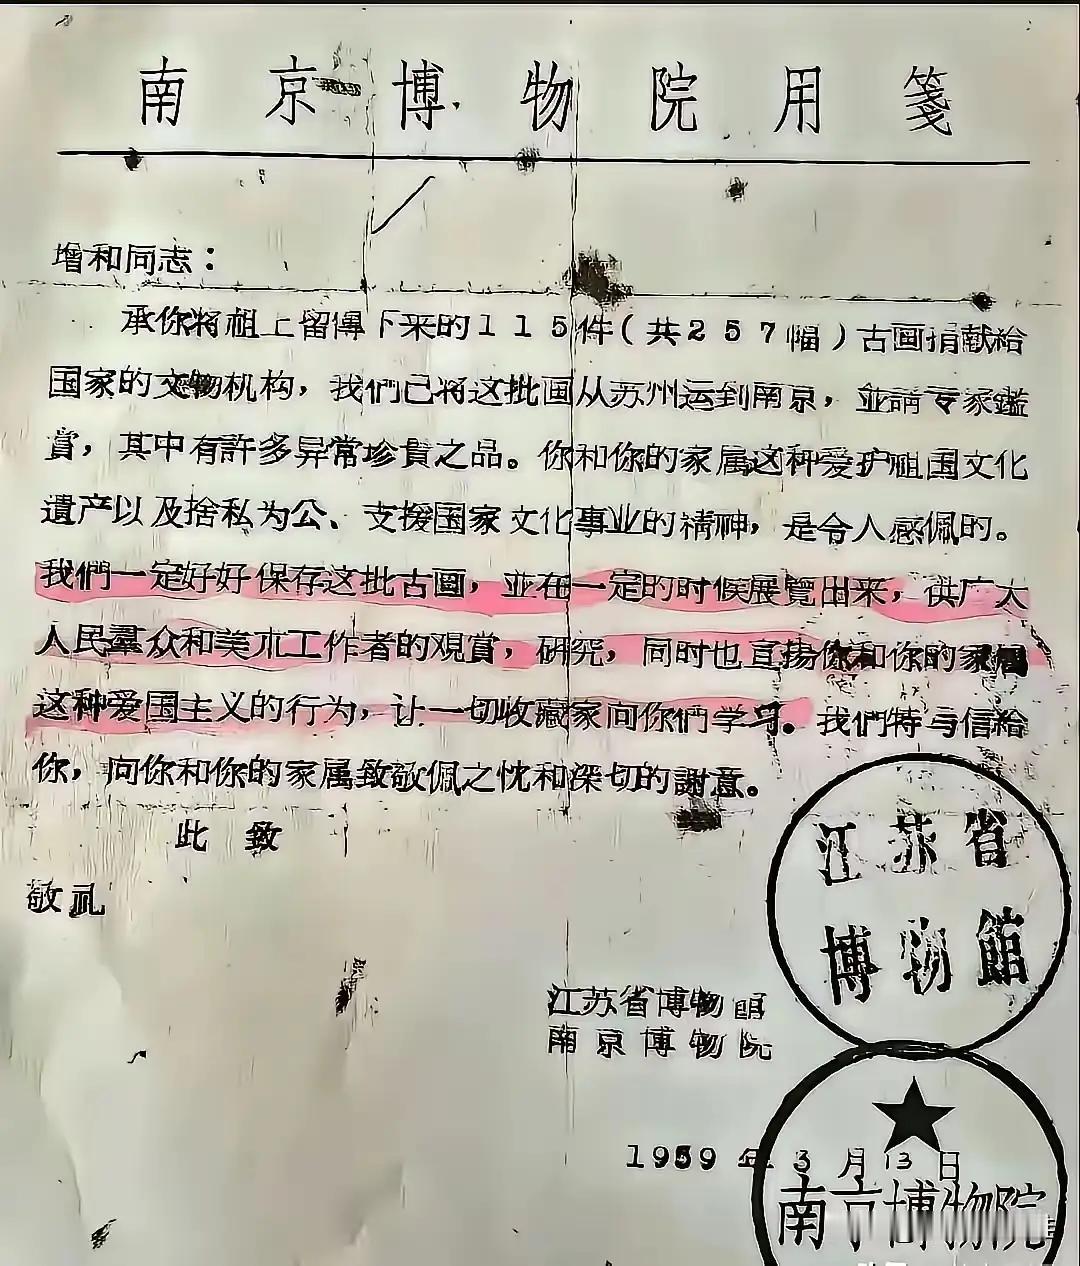 南京博物院用箋
增和同志：
承你将祖上留傳下来的115件(共257幅)古画捐献給
国家的文物机构，我們已将这批画从苏州运到南京，並請专家鑑
賞，其中有許多异常珍貴之品。你和你的家属这种爱护祖国文化
遺产以及捨私为公、支援国家文化事业的精神，是令人感佩的。
我們一定好好保存这批古画，並在一定的时候展覽出来，供广大
人民羣众和美朮工作者的观賞，研究，同时也宣揚你和你的家属
这种爱国主义的行为，让一切收藏家向你們学习。我們特与信給
你，向你和你的家属致敬佩之忱和深切的謝意。
此致
敬礼
江苏省
博物館
江苏省博物館
南京博物院
1959年3月13日
南京博物院